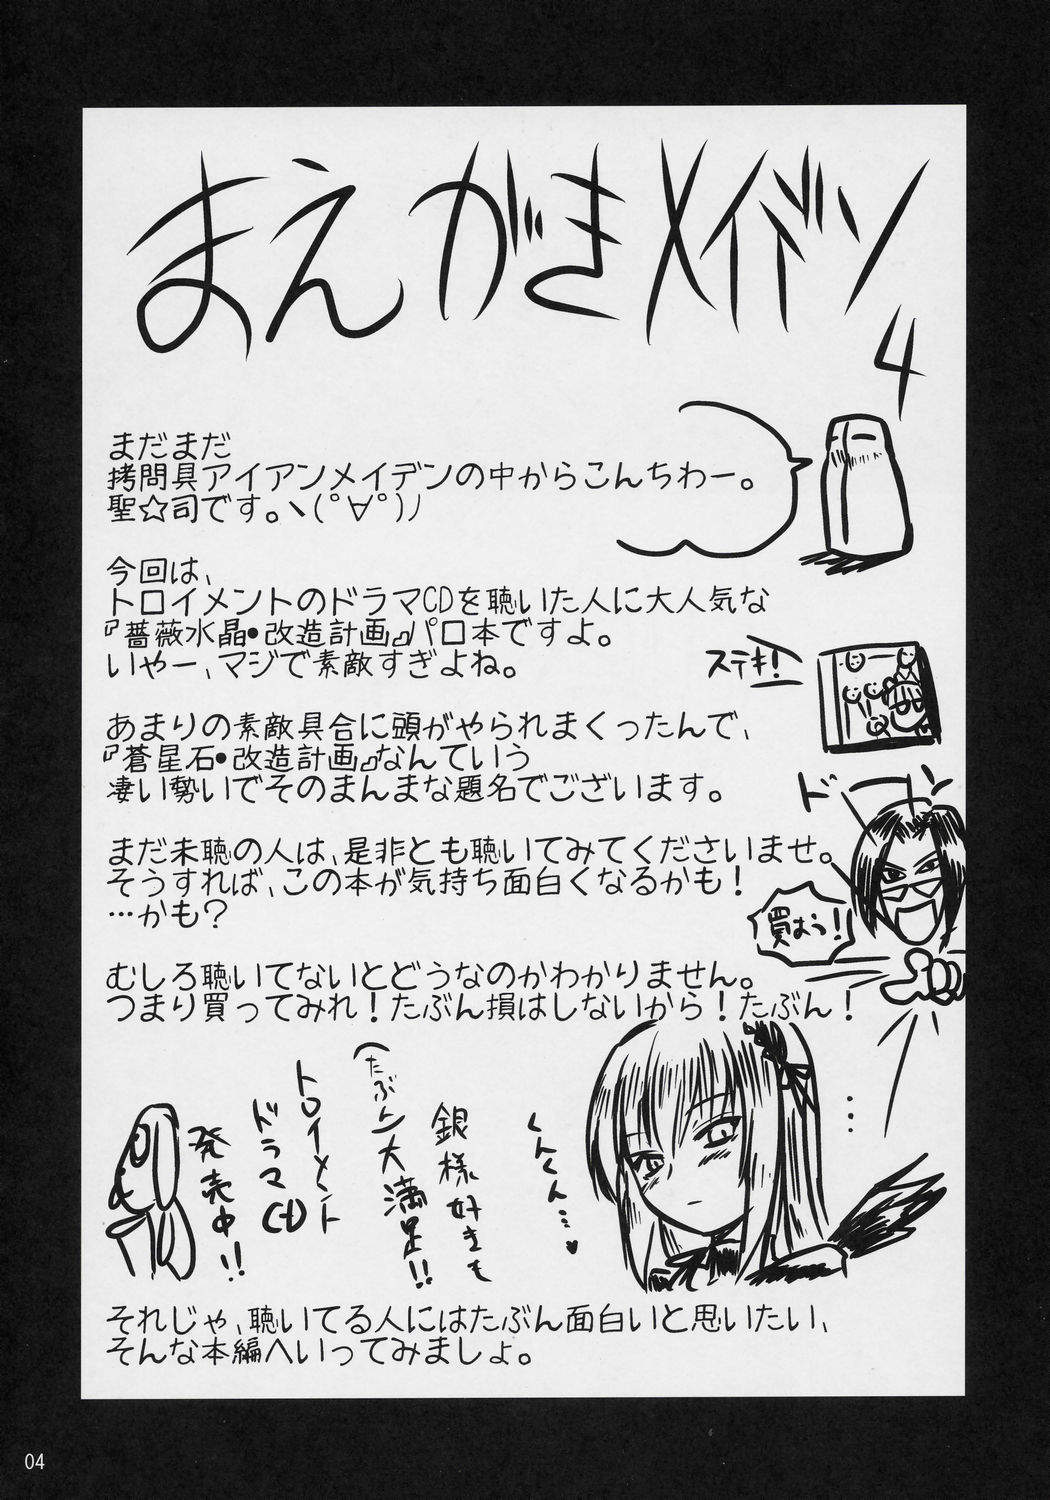 まえがきメイデン
4
まだまだ
拷問具アイアンメイデンの中からこんちわー。
聖☆司です。ヽ(ﾟ∀ﾟ)ﾉ
今回は、
トロイメントのドラマCDを聴いた人に大人気な
『薔薇水晶•改造計画』パロ本ですよ。
いやー、マジで素敵すぎよね。
ステキ!
あまりの素敵具合に頭がやられまくったんで、
『蒼星石•改造計画』なんていう
凄い勢いでそのまんまな題名でございます。
ドーン
まだ未聴の人は、是非とも聴いてみてくださいませ。
そうすれば、この本が気持ち面白くなるかも!
…かも?
買おう!
むしろ聴いてないとどうなのかわかりません。
つまり買ってみれ!たぶん損はしないから!たぶん!
…
くんくん…♥
銀様好きも
(たぶん)大満足!!
トロイメント
ドラマCD
発売中!!
それじゃ、聴いてる人にはたぶん面白いと思いたい、
そんな本編へいってみましょ。
04